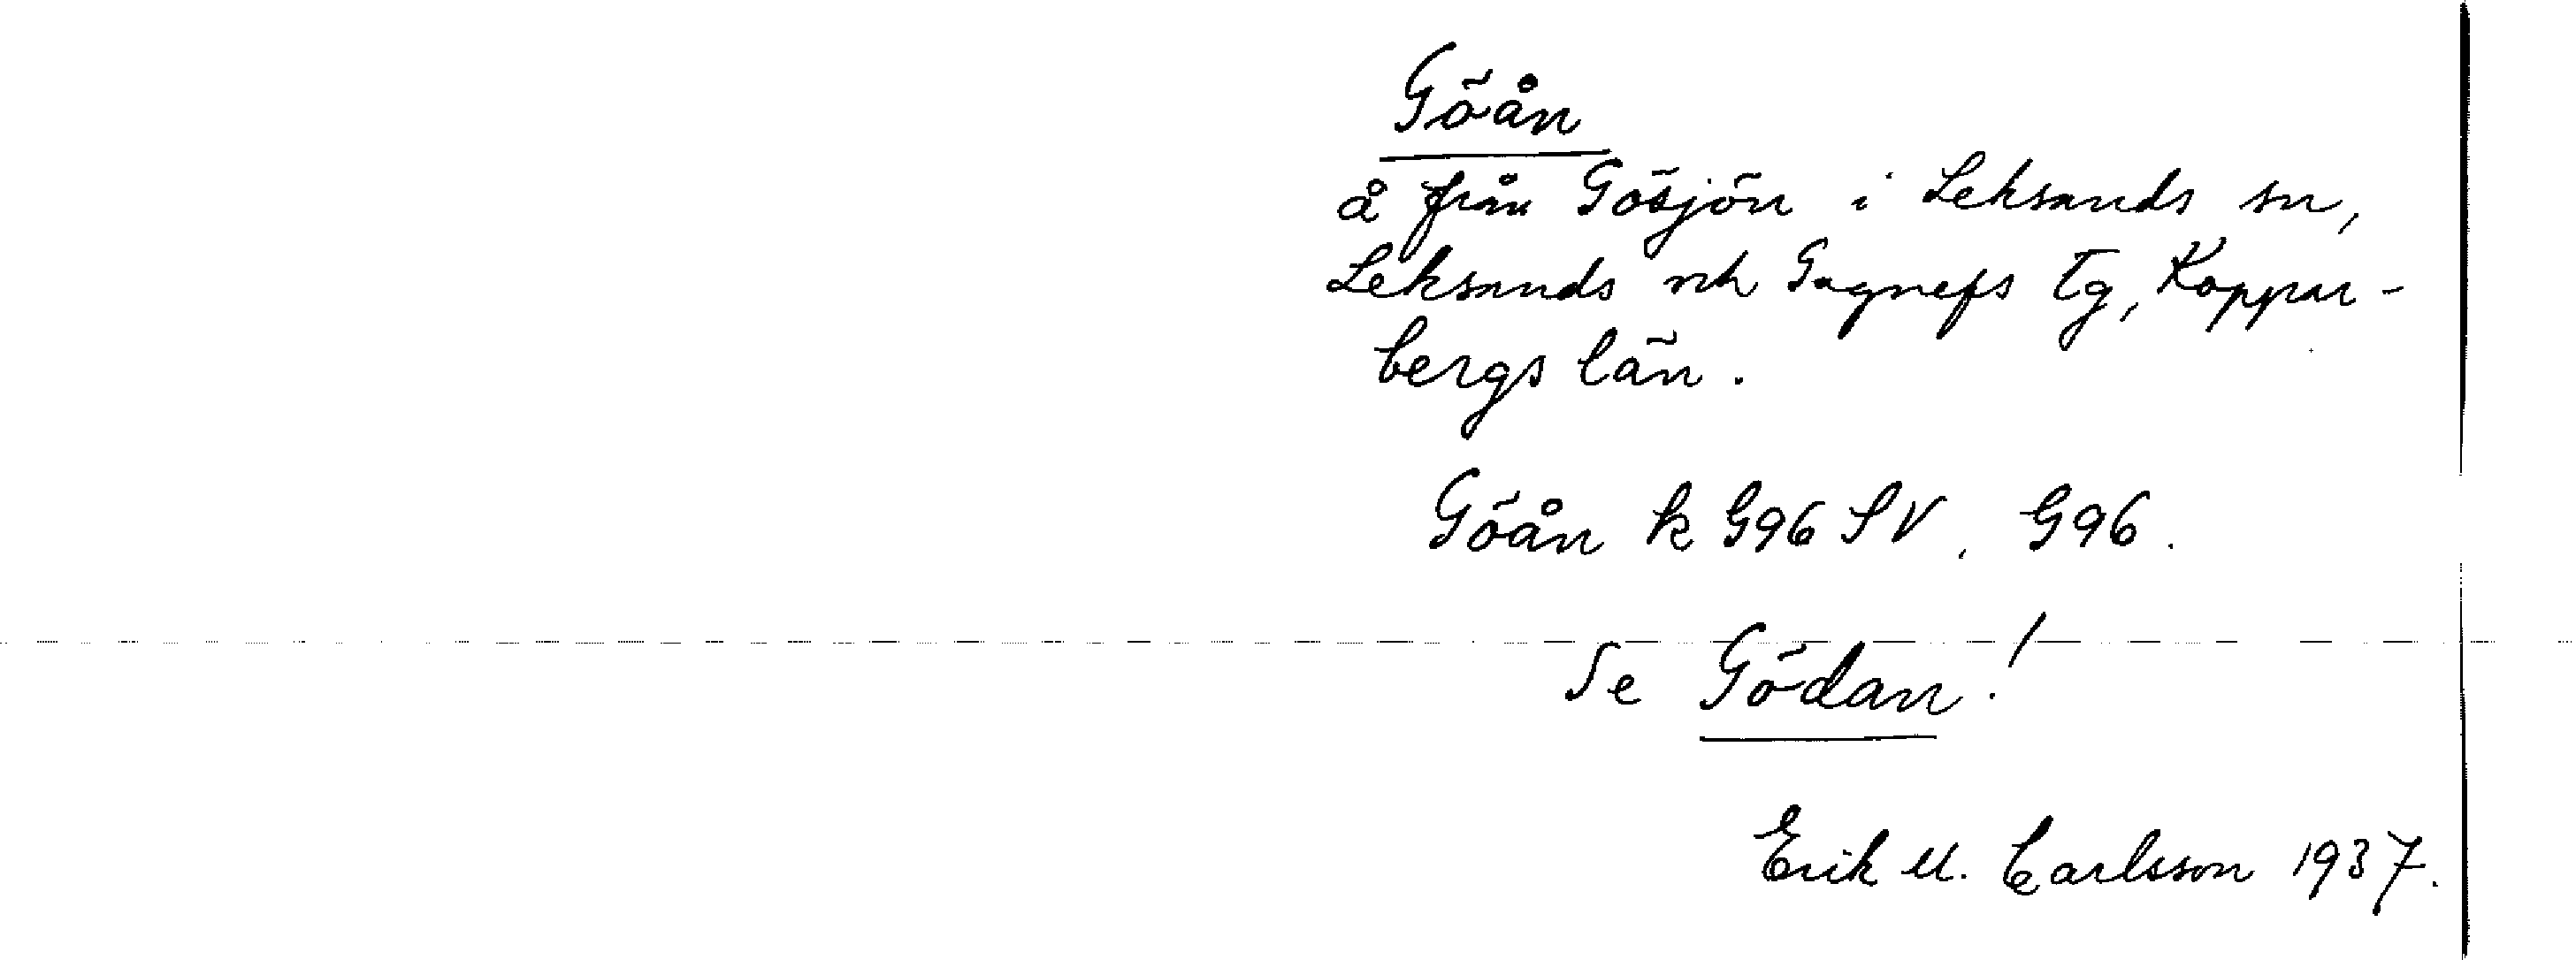 Göån
å från Gösjön i Leksands sn,
Leksands och Gagnefs tg, Koppar-
bergs län.
Göån k G96 SV, G96.
Se Gödan!
Erik M. Carlsson 1937.